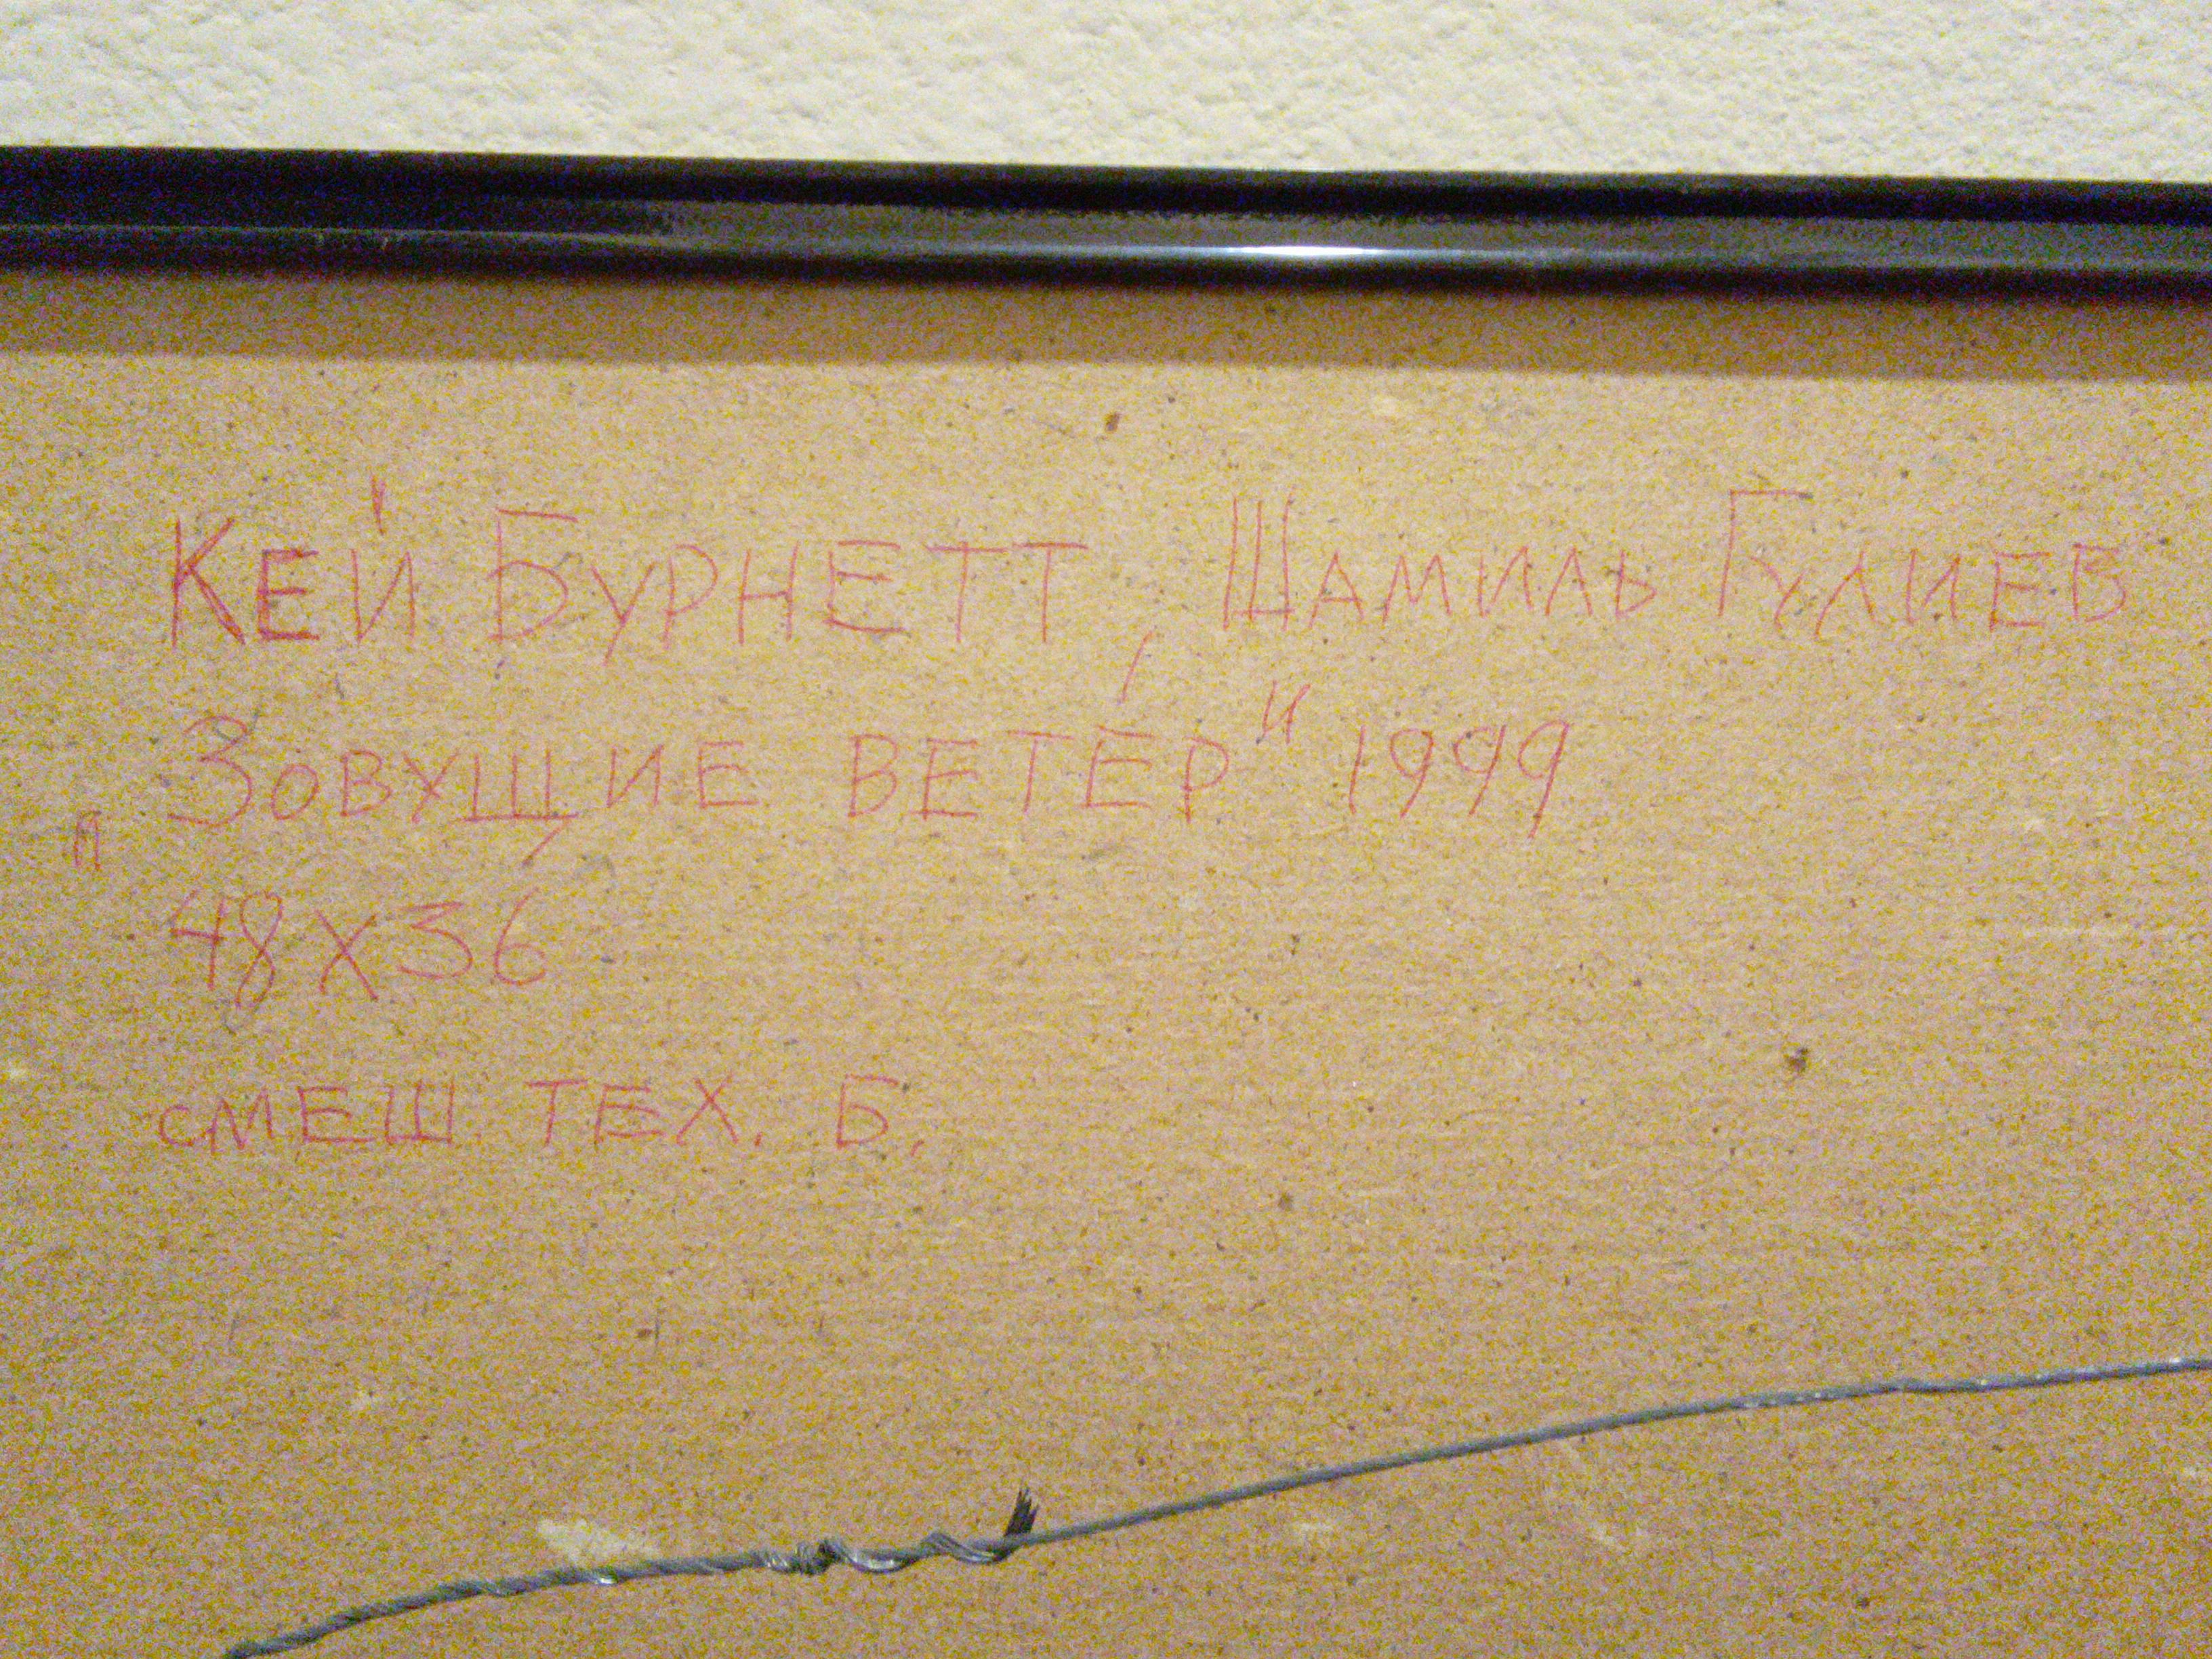 Кей Бурнетт, Шамиль Гулиев
„Зовущие ветер" 1999
48х36
смеш. тех. Б.